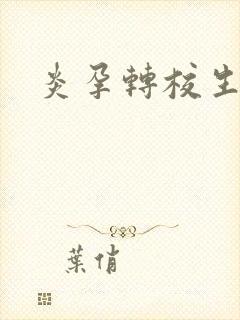 炎孕轉校生
葉俏